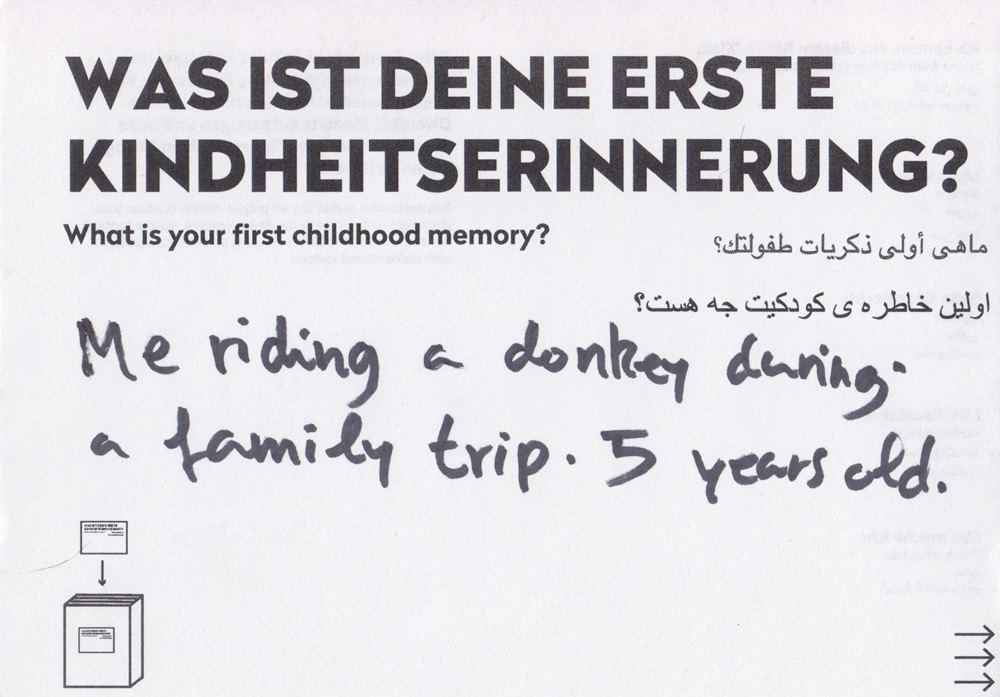 WAS IST DEINE ERSTE
KINDHEITSERINNERUNG?
What is your first childhood memory?
ماهي أولى ذكريات طفولتك؟
اولین خاطره ی کودکیت جه هست؟
Me riding a donkey during
a family trip. 5 years old.